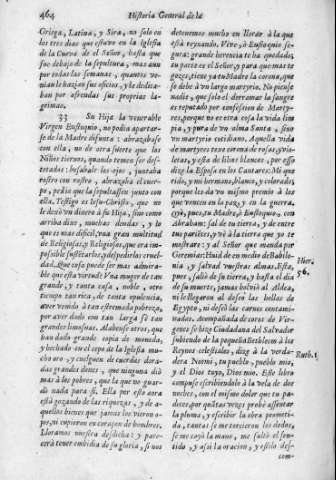 464 Historia General de la
Griega, Latina, y Sira, no solo en
los tres dias que estuvo en la Iglesia
de la Cueva de el Señor, hasta que
fue debajo de la sepultura, mas aun
por todas las semanas, quantos ve-
nian le hazian sus oficios, y le dedica-
ban por ofrendas sus proprias la-
grimas.
33 Su Hija la venerable
Virgen Eustoquio, no podia apartar-
se de la Madre difunta: abrazabase
con ella, no de otra suerte que los
Niños tiernos, quando temen ser des-
tetados: besabale los ojos, juntaba
rostro con rostro, abrazaba el cuer-
po, pedia que la sepultassen junto con
ella. Testigo es Iesu-Christo, que no
le dexò un dinero à su Hija, sino como
arriba dixe, muchas deudas, y lo
que es mas dificil, vna gran multitud
de Religiosas, y Religiosos, que era im-
possible sustentarlos, y despedirlos cruel-
dad. Què cosa puede ser mas admira-
ble que esta virtud? Vna muger de tan
grande, y tanta casa, noble, otro
tiempo tan rica, de tanta opulencia,
aver venido à tan estremada pobreza,
por aver dado con tan larga fè tan
grandes limosnas. Alabense otros, que
han dado grande copia de moneda,
y hechado en el cepo de la Iglesia mu-
cho oro, y cuelguen de cuerdas dora-
das grandes dones, que ninguna diò
mas à los pobres, que la que no guar-
dò nada para sì. Ella por esso aora
està gozando de las riquezas, y de a-
quellos bienes que jamas los vieron o-
jos, ni cupieron en corazon de hombres.
Lloramos nuestra desdicha: y pare-
cerà tener embidia de su gloria, si nos
detenemos mucho en llorar à la que
està reynando. Vive, ò Eustoquio se-
gura: grande herencia te ha quedado,
tu parte es el Señor, y para que mas te
gozes, tiene ya tu Madre la corona, que
se debe à vn largo martyrio. No piense
nadie, que solo el derramar la sangre
es reputado por confession de Marty-
res, porque no es otra cosa la vida lim-
pia, y pura de vn alma Santa, sino
vn martyrio cotidiano. Aquella vida
de martyres texe corona de rosas, y vio-
letas, y esta de lilios blancos, por esso
dize la Esposa en los Cantares: Mi que
rido, y mi hermano, blanco, y colorado;
porque les dà vn mismo premio à los
que vencen en la paz, y en la guerra.
Oyò, pues, tu Madre, ò Eustoquio, con
Abraham: sal de tu tierra, y de entre
tus parientes, y vè à la tierra que yo te
mostrare: y al Señor que manda por
Geremias: Huid de en medio de Babilo-
nia, y salvad vuestras almas. Esta,
pues, saliò de su tierra, y hasta el dia
de su muerte, jamas bolviò al Aldea,
ni le llegaron al deseo las hollas de
Egypto, ni deseò las carnes contami-
nadas. Acompañada de coros de Vir-
genes se hizo Ciudadana del Salvador
subiendo de la pequeña Bethleem à los
Reynos celestiales, dize à la verda-
dera Noemi, tu pueblo, pueblo mio,
y el Dios tuyo, Dios mio. Este libro
compuse escribiendole à la vela de dos
noches, con el mismo dolor que tu pa-
deces, por quãtas vezes probè assentar
la pluma, y escribir la obra prometi-
da, tantas se me torcieron los dedos,
se me cayò la mano, me faltò el sen-
tido, y assi la oracion, y estilo des-
com-
Hier.
56.
Ruth. 1.